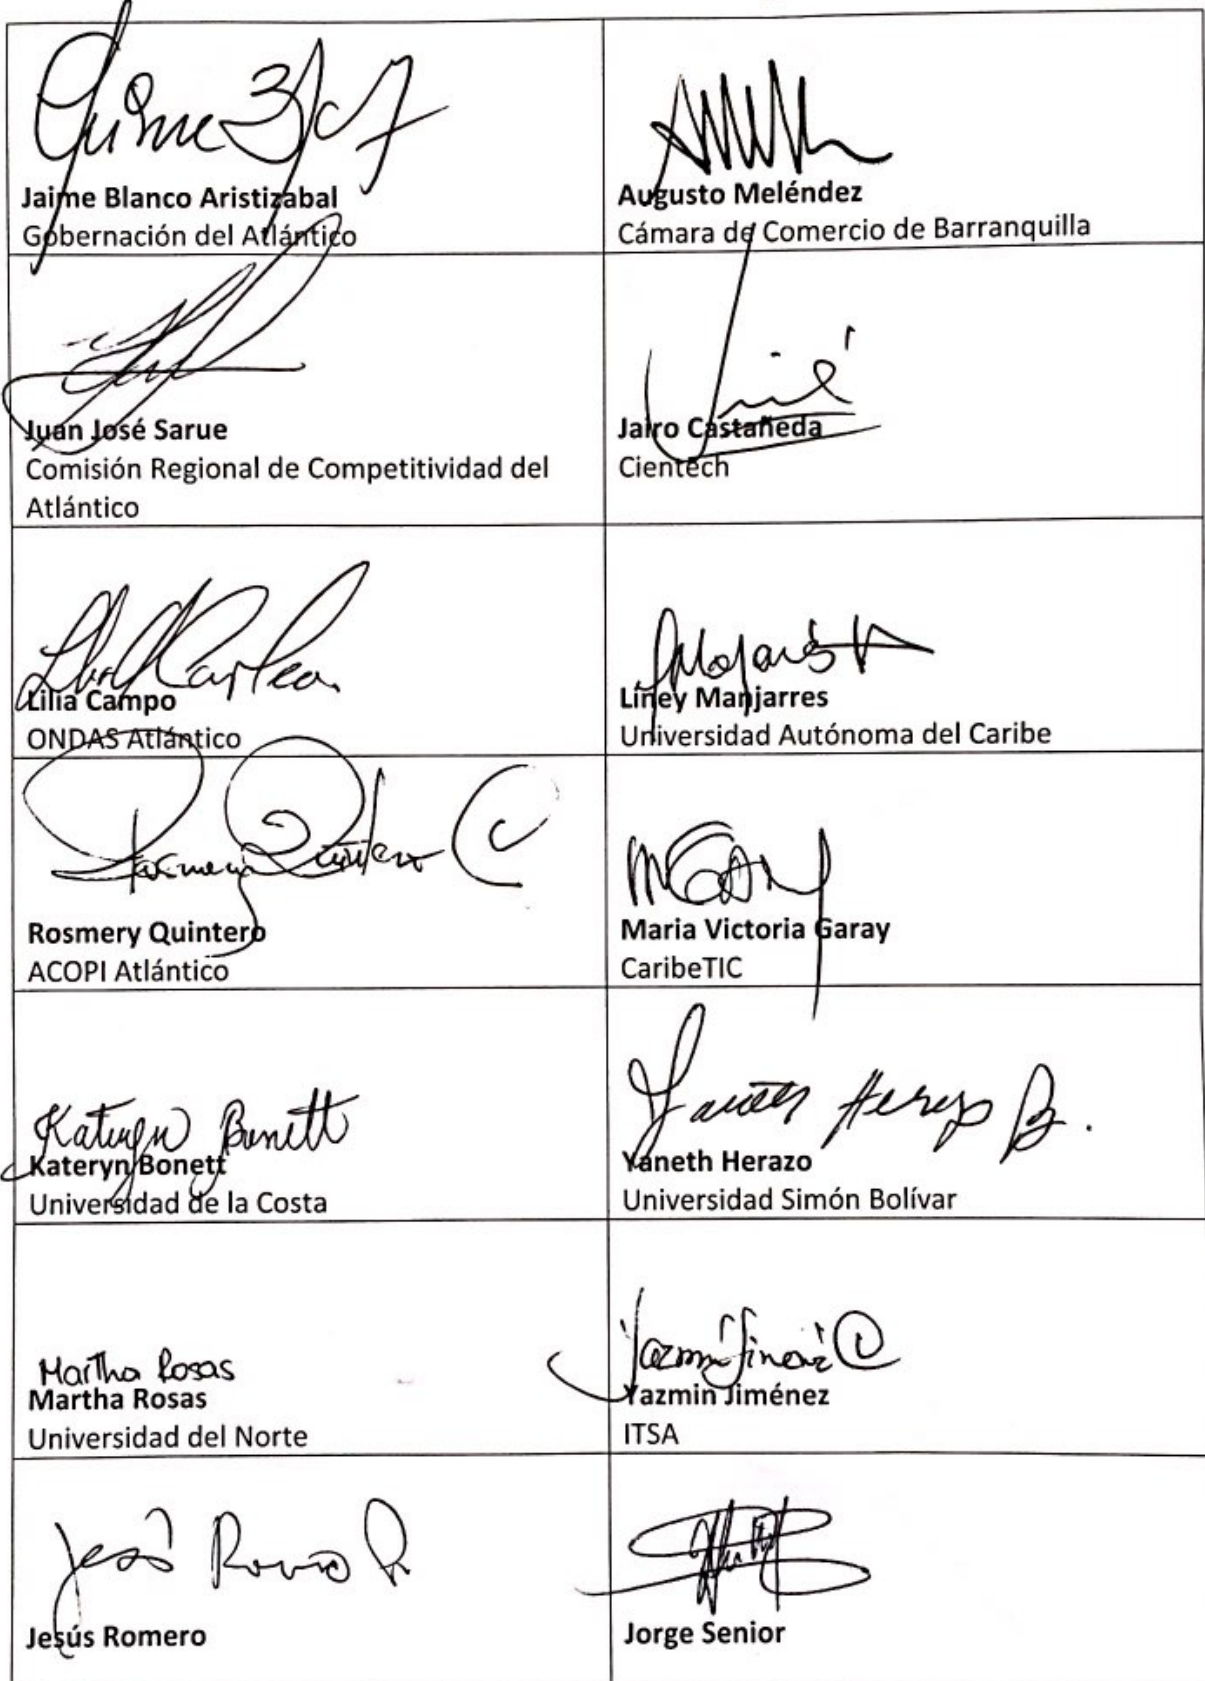 Jaime Blanco Aristizabal
Gobernación del Atlántico
Augusto Meléndez
Cámara de Comercio de Barranquilla
Juan José Sarue
Comisión Regional de Competitividad del
Atlántico
Jairo Castañeda
Cientech
Lilia Campo
ONDAS Atlántico
Liney Manjarres
Universidad Autónoma del Caribe
Rosmery Quintero
ACOPI Atlántico
Maria Victoria Garay
CaribeTIC
Kateryn Bonett
Kateryn Bonett
Universidad de la Costa
Yaneth Herazo
Universidad Simón Bolívar
Martha Rosas
Martha Rosas
Universidad del Norte
Yazmin Jiménez
ITSA
Jesús Romero
Jorge Senior